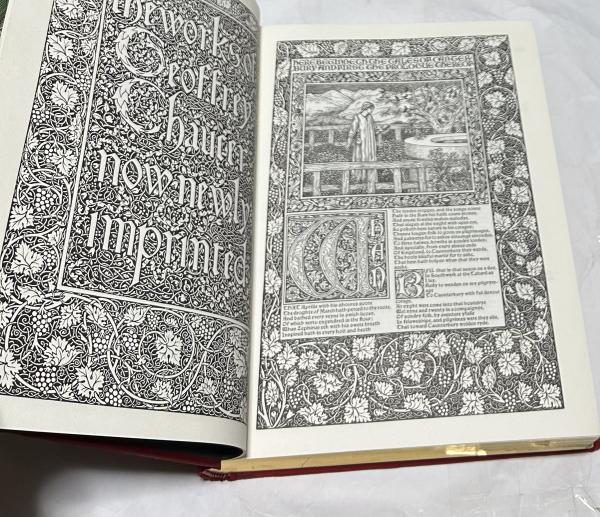 the works of
Geoffrey
Chaucer
now newly
imprinted
HERE BEGINNETH THE TALES OF CANTER
BURY AND FIRST THE PROLOGUE THEREOF
WHAN
THAT Aprille with his shoures soote
The droghte of March hath perced to the roote,
And bathed every veyne in swich licour,
Of which vertu engendred is the flour;
Whan Zephirus eek with his swete breeth
Inspired hath in every holt and heeth
The tendre croppes, and the yonge sonne
Hath in the Ram his halfe cours yronne,
And smale foweles maken melodye,
That slepen al the nyght with open eye,
So priketh hem nature in hir corages;
Thanne longen folk to goon on pilgrimages,
And palmeres for to seken straunge strondes,
To ferne halwes, kowthe in sondry londes;
And specially, from every shires ende
Of Engelond, to Caunterbury they wende,
The hooly blisful martir for to seke,
That hem hath holpen whan that they were
BIFIL that in that seson on a day,
In Southwerk at the Tabard as
I lay,
Redy to wenden on my pilgrym-
age
To Caunterbury with ful devout
corage,
At nyght were come into that hostelrye
Wel nyne and twenty in a compaignye,
Of sondry folk, by aventure yfalle
In felaweshipe, and pilgrimes were they alle,
That toward Caunterbury wolden ryde.